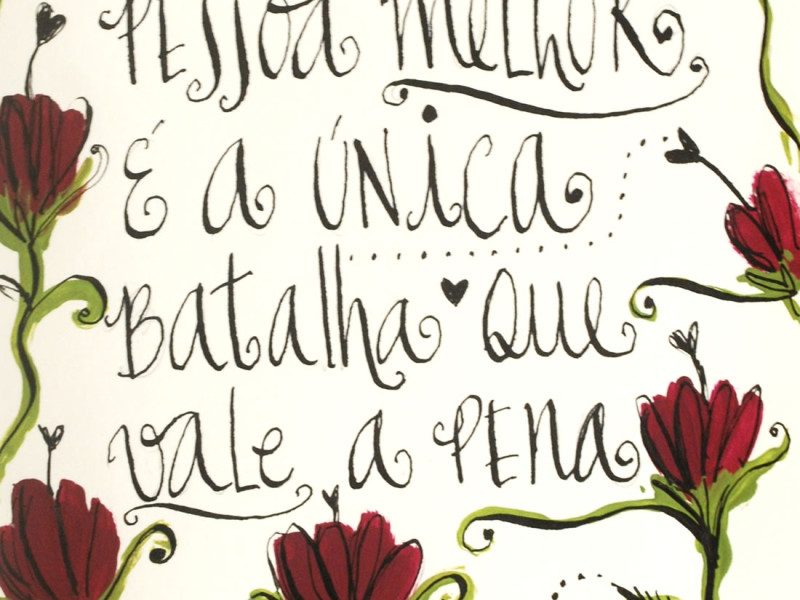 PESSOA MELHOR
É a ÚNiCa
Batalha Que
vale a PENa